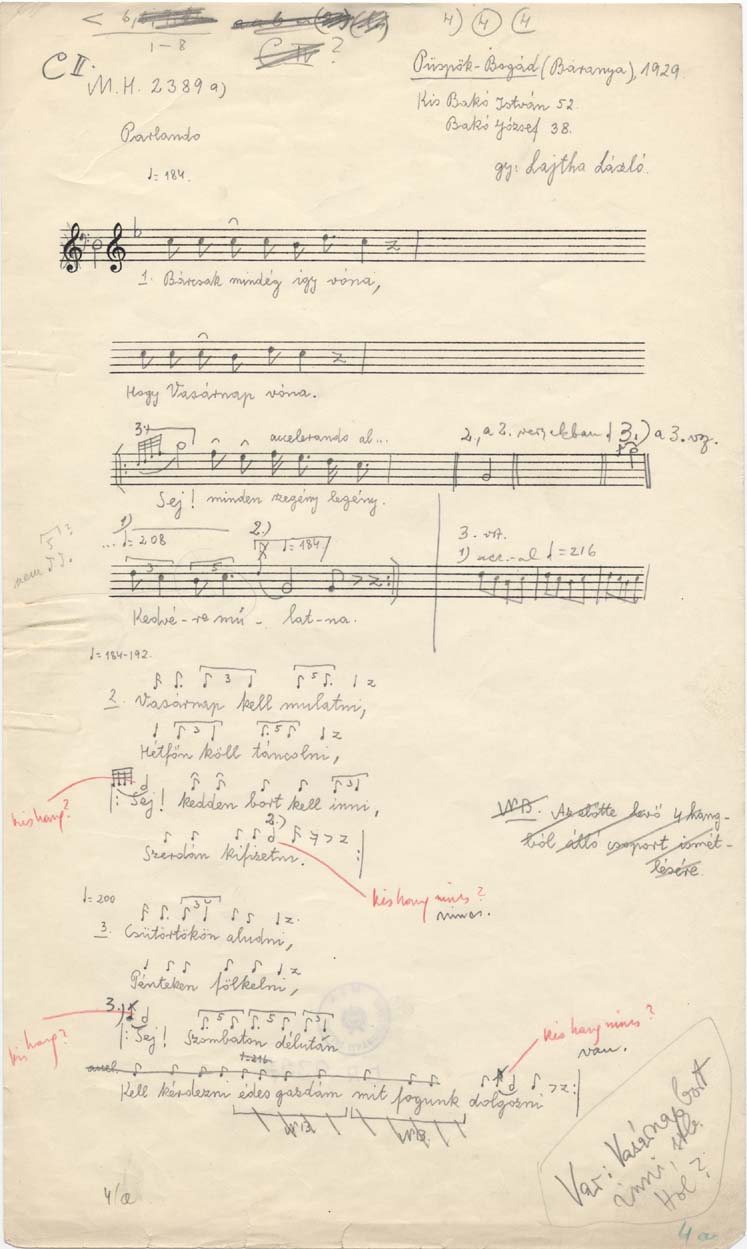 1-8
4) 4 4
C II.
C IV ?
M.H. 2389 a)
Püspök-Bogád (Baranya), 1929.
Kis Bakó István 52.
Bakó József 38.
gy: Lajtha László.
Parlando
♩= 184.
1. Bárcsak mindég igy vóna,
Hogy Vasárnap vóna.
3.)
accelerando al...
2., a 2. versszakban
3.) a 3. vsz.
Sej! minden szegény legény.
1)
... ♩= 208
2.)
♩= 184
3. vsz.
1) acc.-al ♩= 216
5 ?
nem
3
5
Kedvé-re mú- lat-na.
♩= 184-192.
3 5
2. Vasárnap kell mulatni,
3 5
Hétfőn köll táncolni,
3
|: Sej! kedden bort kell inni,
kis hang?
2.)
Szerdán kifizetni. :|
NB. Az előtte levő 4 hang-
ból álló csoport ismét-
lésére.
kis hang nincs?
nincs.
♩= 200
3
3. Csütörtökön aludni,
Pénteken fölkelni,
3.)
5 5 3
|: Sej! Szombaton délután
kis hang?
kis hang nincs?
van.
accel.
♩=216
Kell kérdezni édes gazdám mit fogunk dolgozni :|
Var: Vasárnap bort
inni, stb.
Hol?
4/a
4a